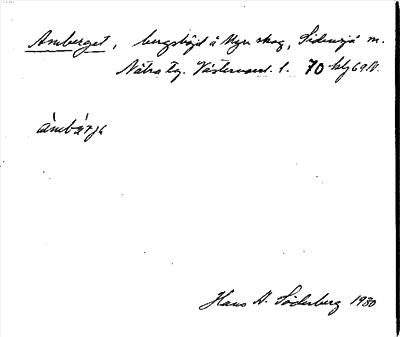 Amberget, bergshöjd å Myre skog, Sidensjö sn.
Nätra tg. Västernorrl. l. 70
àmbǽrjə
Hans A. Söderberg 1930